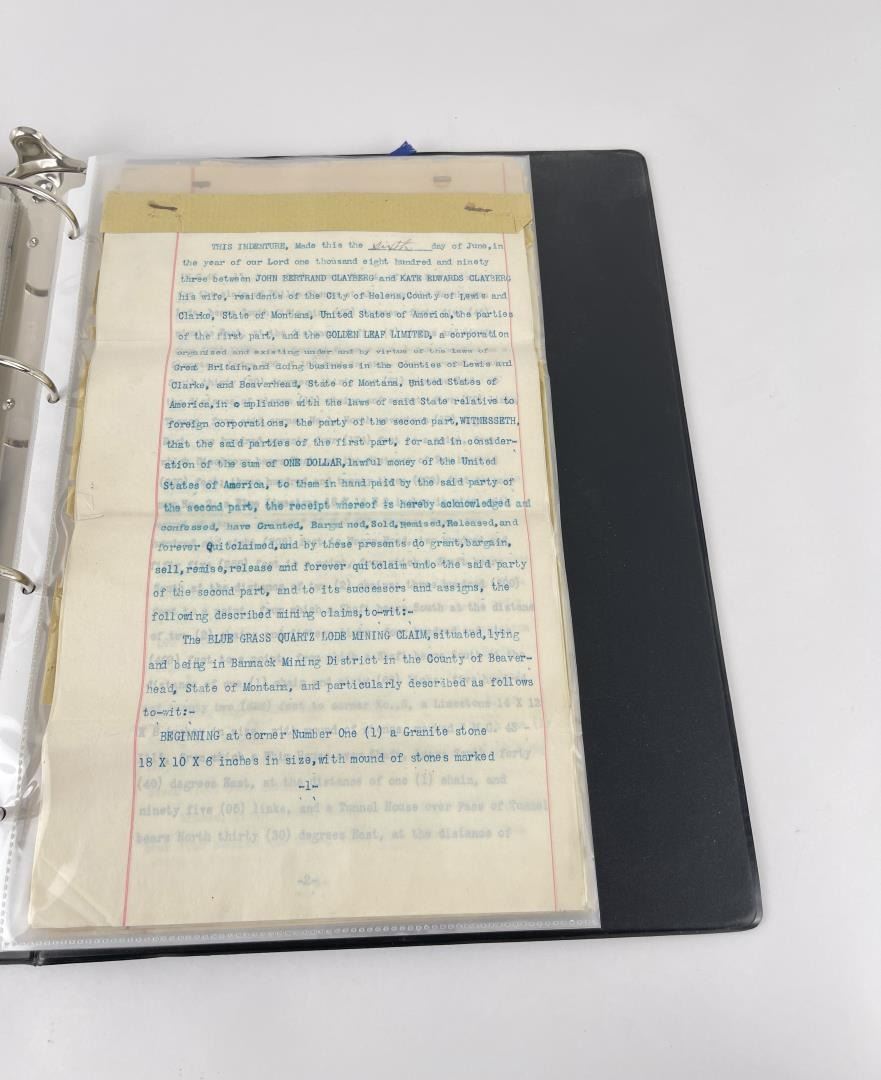 THIS INDENTURE, Made this the sixth day of June,in
the year of our Lord one thousand eight hundred and ninety
three between JOHN BERTRAND CLAYBERG and KATE EDWARDS CLAYBERG
his wife, residents of the City of Helena,County of Lewis and
Clarke, State of Montana, United States of America,the parties
of the first part, and the GOLDEN LEAF LIMITED, a corporation
organized and existing under and by virtue of the laws of
Great Britain,and doing business in the Counties of Lewis and
Clarke, and Beaverhead, State of Montana, United States of
America,in c mpliance with the laws of said State relative to
foreign corporations, the party of the second part,WITNESSETH,
that the said parties of the first part, for and in consider-
ation of the sum of ONE DOLLAR,lawful money of the United
States of America, to them in hand paid by the said party of
the second part, the receipt whereof is hereby acknowledged and
confessed, have Granted, Bargained,Sold,Remised,Released,and
forever Quitclaimed,and by these presents do grant,bargain,
sell,remise,release and forever quitclaim unto the said party
of the second part, and to its successors and assigns, the
following described mining claims,to-wit:-
The BLUE GRASS QUARTZ LODE MINING CLAIM,situated,lying
and being in Bannack Mining District in the County of Beaver-
head, State of Montana, and particularly described as follows
to-wit:-
BEGINNING at corner Number One (1) a Granite stone
18 X 10 X 6 inches in size,with mound of stones marked
-1-
(40) degrees East, at the distance of one (1) chain, and
ninety five (95) links, and a Tunnel House over Face of Tunnel
bears North thirty (30) degrees East, at the distance of
-2-